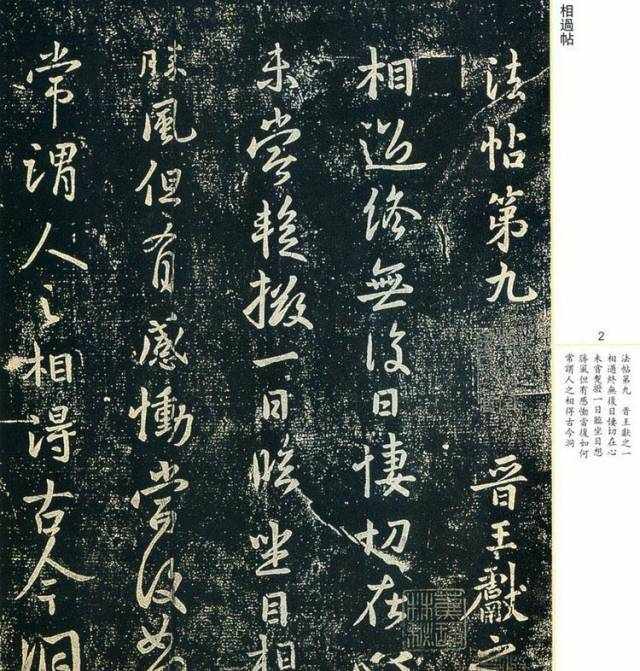 相過帖
法帖第九 晋王獻之
相過終無後日悽切在
未嘗暫撥一日臨坐目想
勝風但有感慟當復如
常謂人之相得古今洞
2
法帖第九 晋王獻之一
相過終無後日悽切在心
未嘗暫撥一日臨坐目想
勝風但有感慟當復如何
常謂人之相得古今洞